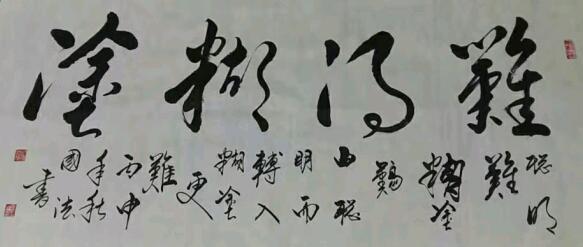 難得糊塗
聰明
難
糊塗
難
由聰
明而
轉入
糊塗
更
難
丙申
年秋
國法
書